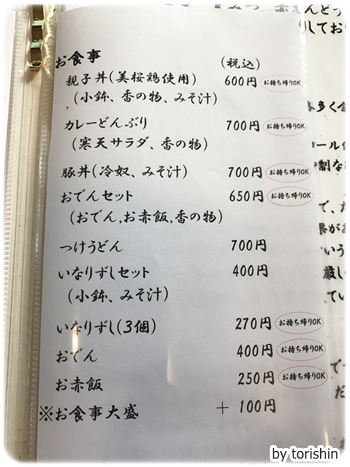 お食事 (税込)
親子丼(美桜鶏使用) 600円 お持ち帰りOK
(小鉢、香の物、みそ汁)
カレーどんぶり 700円 お持ち帰りOK
(寒天サラダ、香の物)
豚丼(冷奴、みそ汁) 700円 お持ち帰りOK
おでんセット 650円 お持ち帰りOK
(おでん,お赤飯,香の物)
つけうどん 700円
いなりずしセット 400円
(小鉢、みそ汁)
いなりずし(3個) 270円 お持ち帰りOK
おでん 400円 お持ち帰りOK
お赤飯 250円 お持ち帰りOK
※お食事大盛 + 100円
by torishin